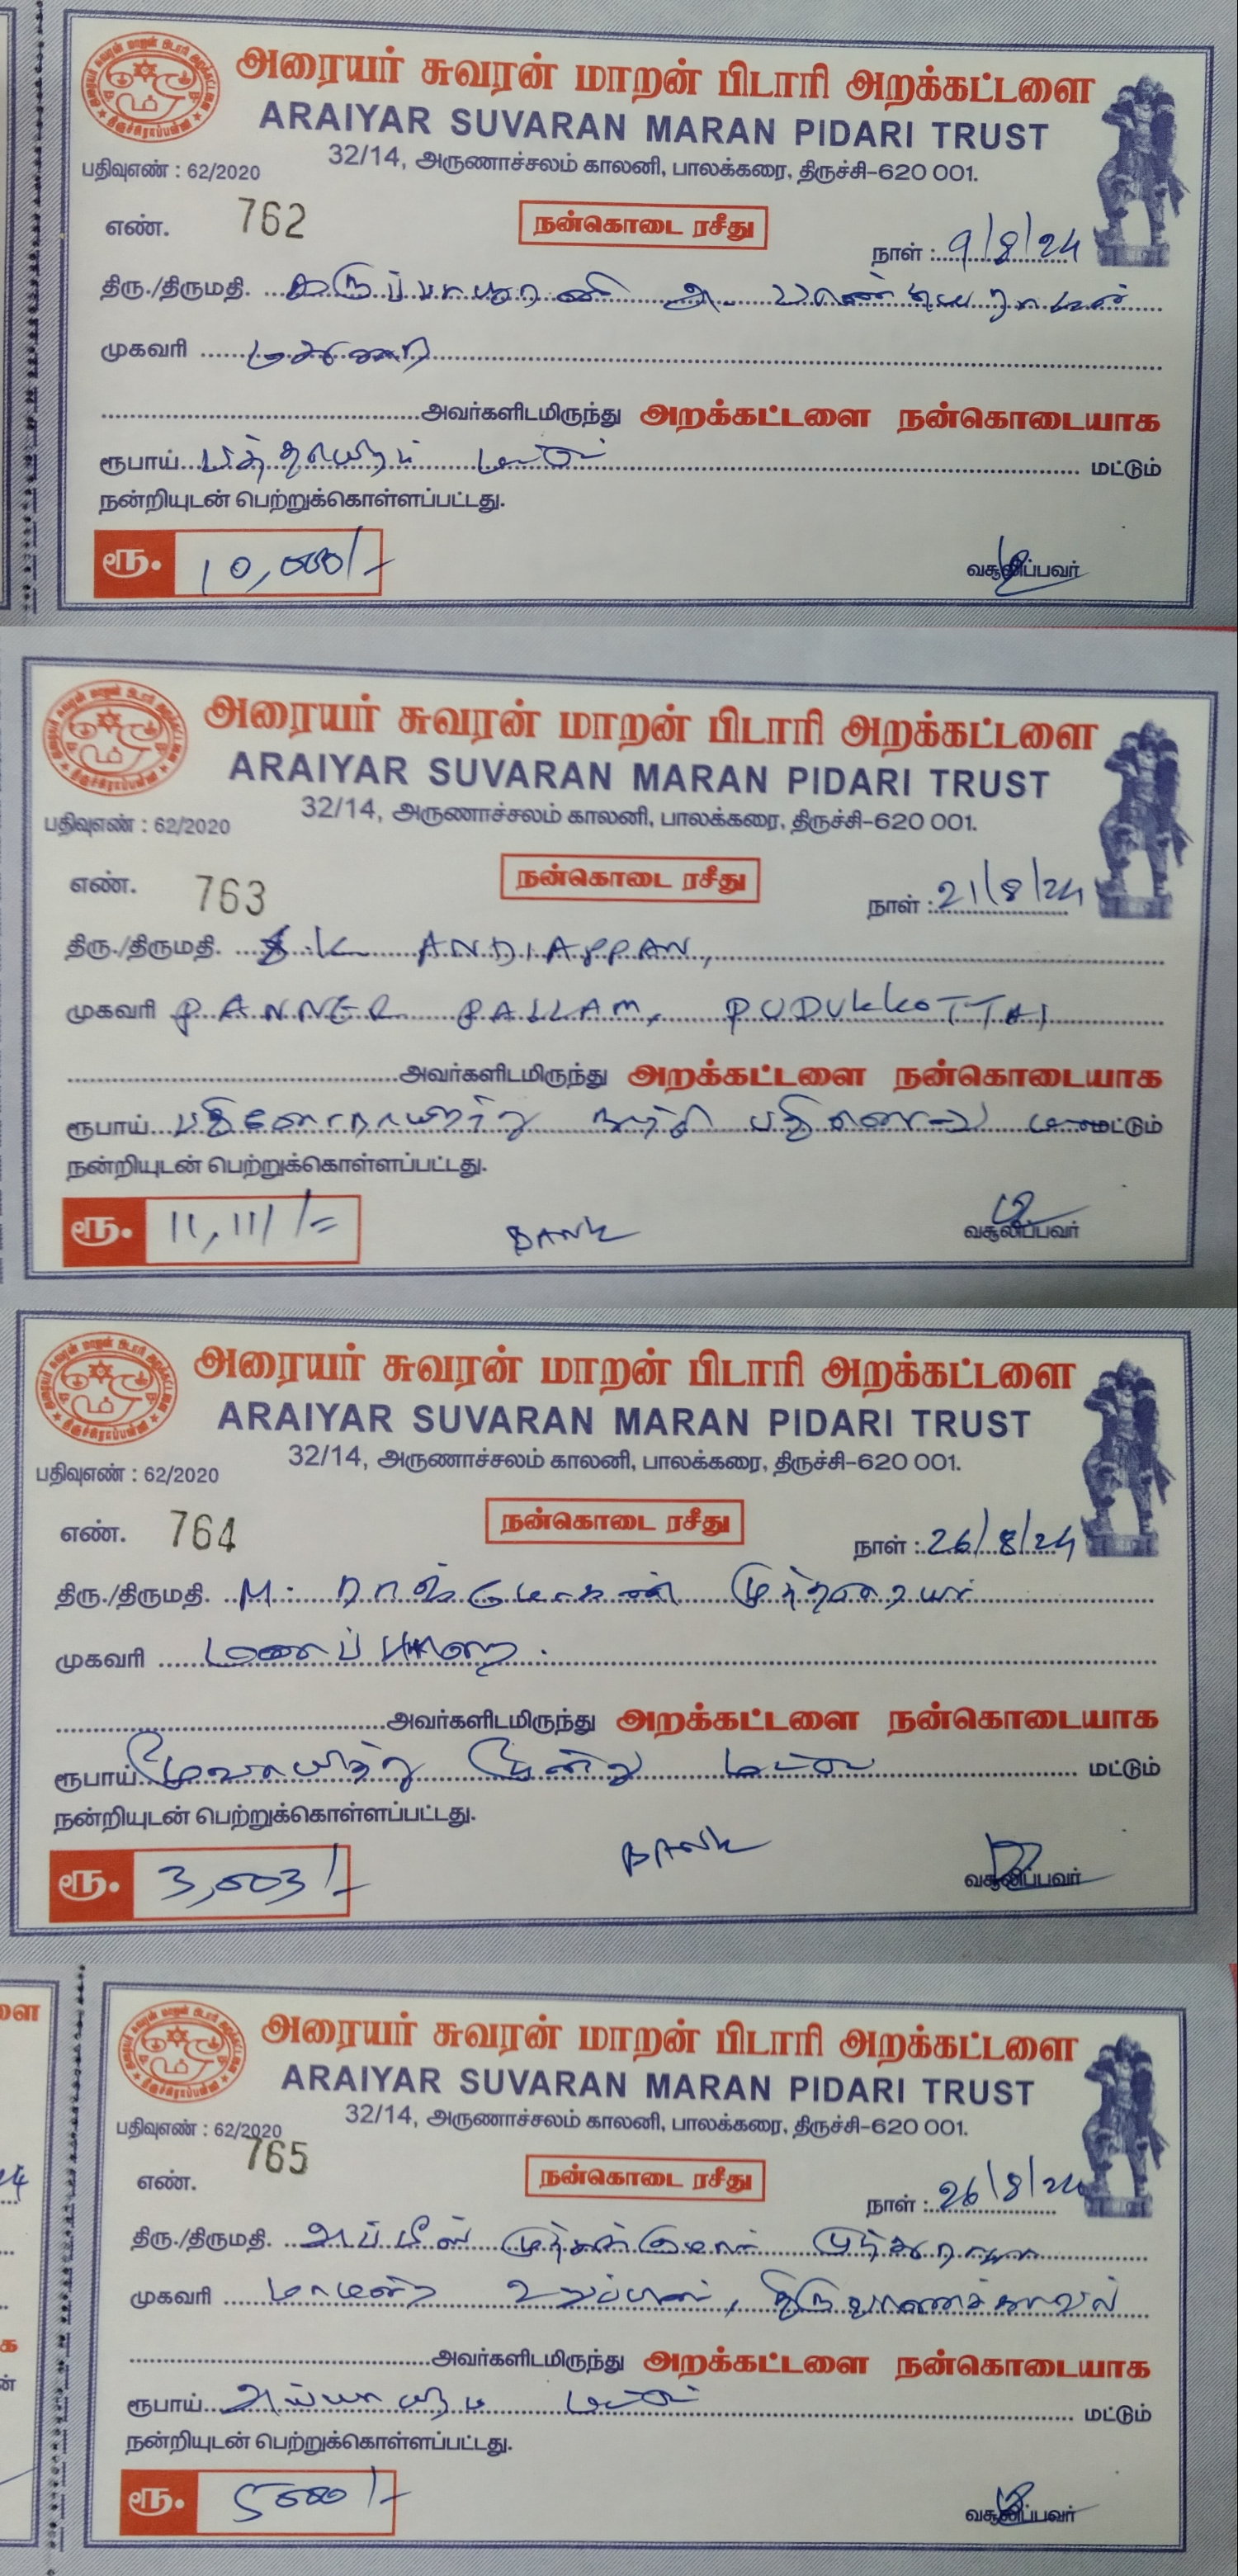 அரையர் சுவரன் மாறன் பிடாரி அறக்கட்டளை
ARAIYAR SUVARAN MARAN PIDARI TRUST
32/14, அருணாச்சலம் காலனி, பாலக்கரை, திருச்சி-620 001.
பதிவுஎண் : 62/2020
எண். 762 நன்கொடை ரசீது நாள் : 9/8/24
திரு./திருமதி.
முகவரி
அவர்களிடமிருந்து அறக்கட்டளை நன்கொடையாக
ரூபாய் பத்தாயிரம் மட்டும் மட்டும்
நன்றியுடன் பெற்றுக்கொள்ளப்பட்டது.
ரூ. 10,000/- வசூலிப்பவர்
அரையர் சுவரன் மாறன் பிடாரி அறக்கட்டளை
ARAIYAR SUVARAN MARAN PIDARI TRUST
32/14, அருணாச்சலம் காலனி, பாலக்கரை, திருச்சி-620 001.
பதிவுஎண் : 62/2020
எண். 763 நன்கொடை ரசீது நாள் : 21/8/24
திரு./திருமதி. ANDIAPPAN,
முகவரி PANNER PALLAM, PUDUKKOTTAI
அவர்களிடமிருந்து அறக்கட்டளை நன்கொடையாக
ரூபாய் மட்டும்
நன்றியுடன் பெற்றுக்கொள்ளப்பட்டது.
ரூ. 11,111/= BANK வசூலிப்பவர்
அரையர் சுவரன் மாறன் பிடாரி அறக்கட்டளை
ARAIYAR SUVARAN MARAN PIDARI TRUST
32/14, அருணாச்சலம் காலனி, பாலக்கரை, திருச்சி-620 001.
பதிவுஎண் : 62/2020
எண். 764 நன்கொடை ரசீது நாள் : 26/8/24
திரு./திருமதி. M. ராஜ்மோகன் முத்தரையர்
முகவரி மணப்பாறை.
அவர்களிடமிருந்து அறக்கட்டளை நன்கொடையாக
ரூபாய் மூவாயிரத்து மூன்று மட்டும் மட்டும்
நன்றியுடன் பெற்றுக்கொள்ளப்பட்டது.
ரூ. 3,003/- BANK வசூலிப்பவர்
அரையர் சுவரன் மாறன் பிடாரி அறக்கட்டளை
ARAIYAR SUVARAN MARAN PIDARI TRUST
32/14, அருணாச்சலம் காலனி, பாலக்கரை, திருச்சி-620 001.
பதிவுஎண் : 62/2020
எண். 765 நன்கொடை ரசீது நாள் : 26/8/24
திரு./திருமதி.
முகவரி மாமன்ற உறுப்பினர், திருவானைக்காவல்
அவர்களிடமிருந்து அறக்கட்டளை நன்கொடையாக
ரூபாய் ஐயாயிரம் மட்டும் மட்டும்
நன்றியுடன் பெற்றுக்கொள்ளப்பட்டது.
ரூ. 5000/- வசூலிப்பவர்